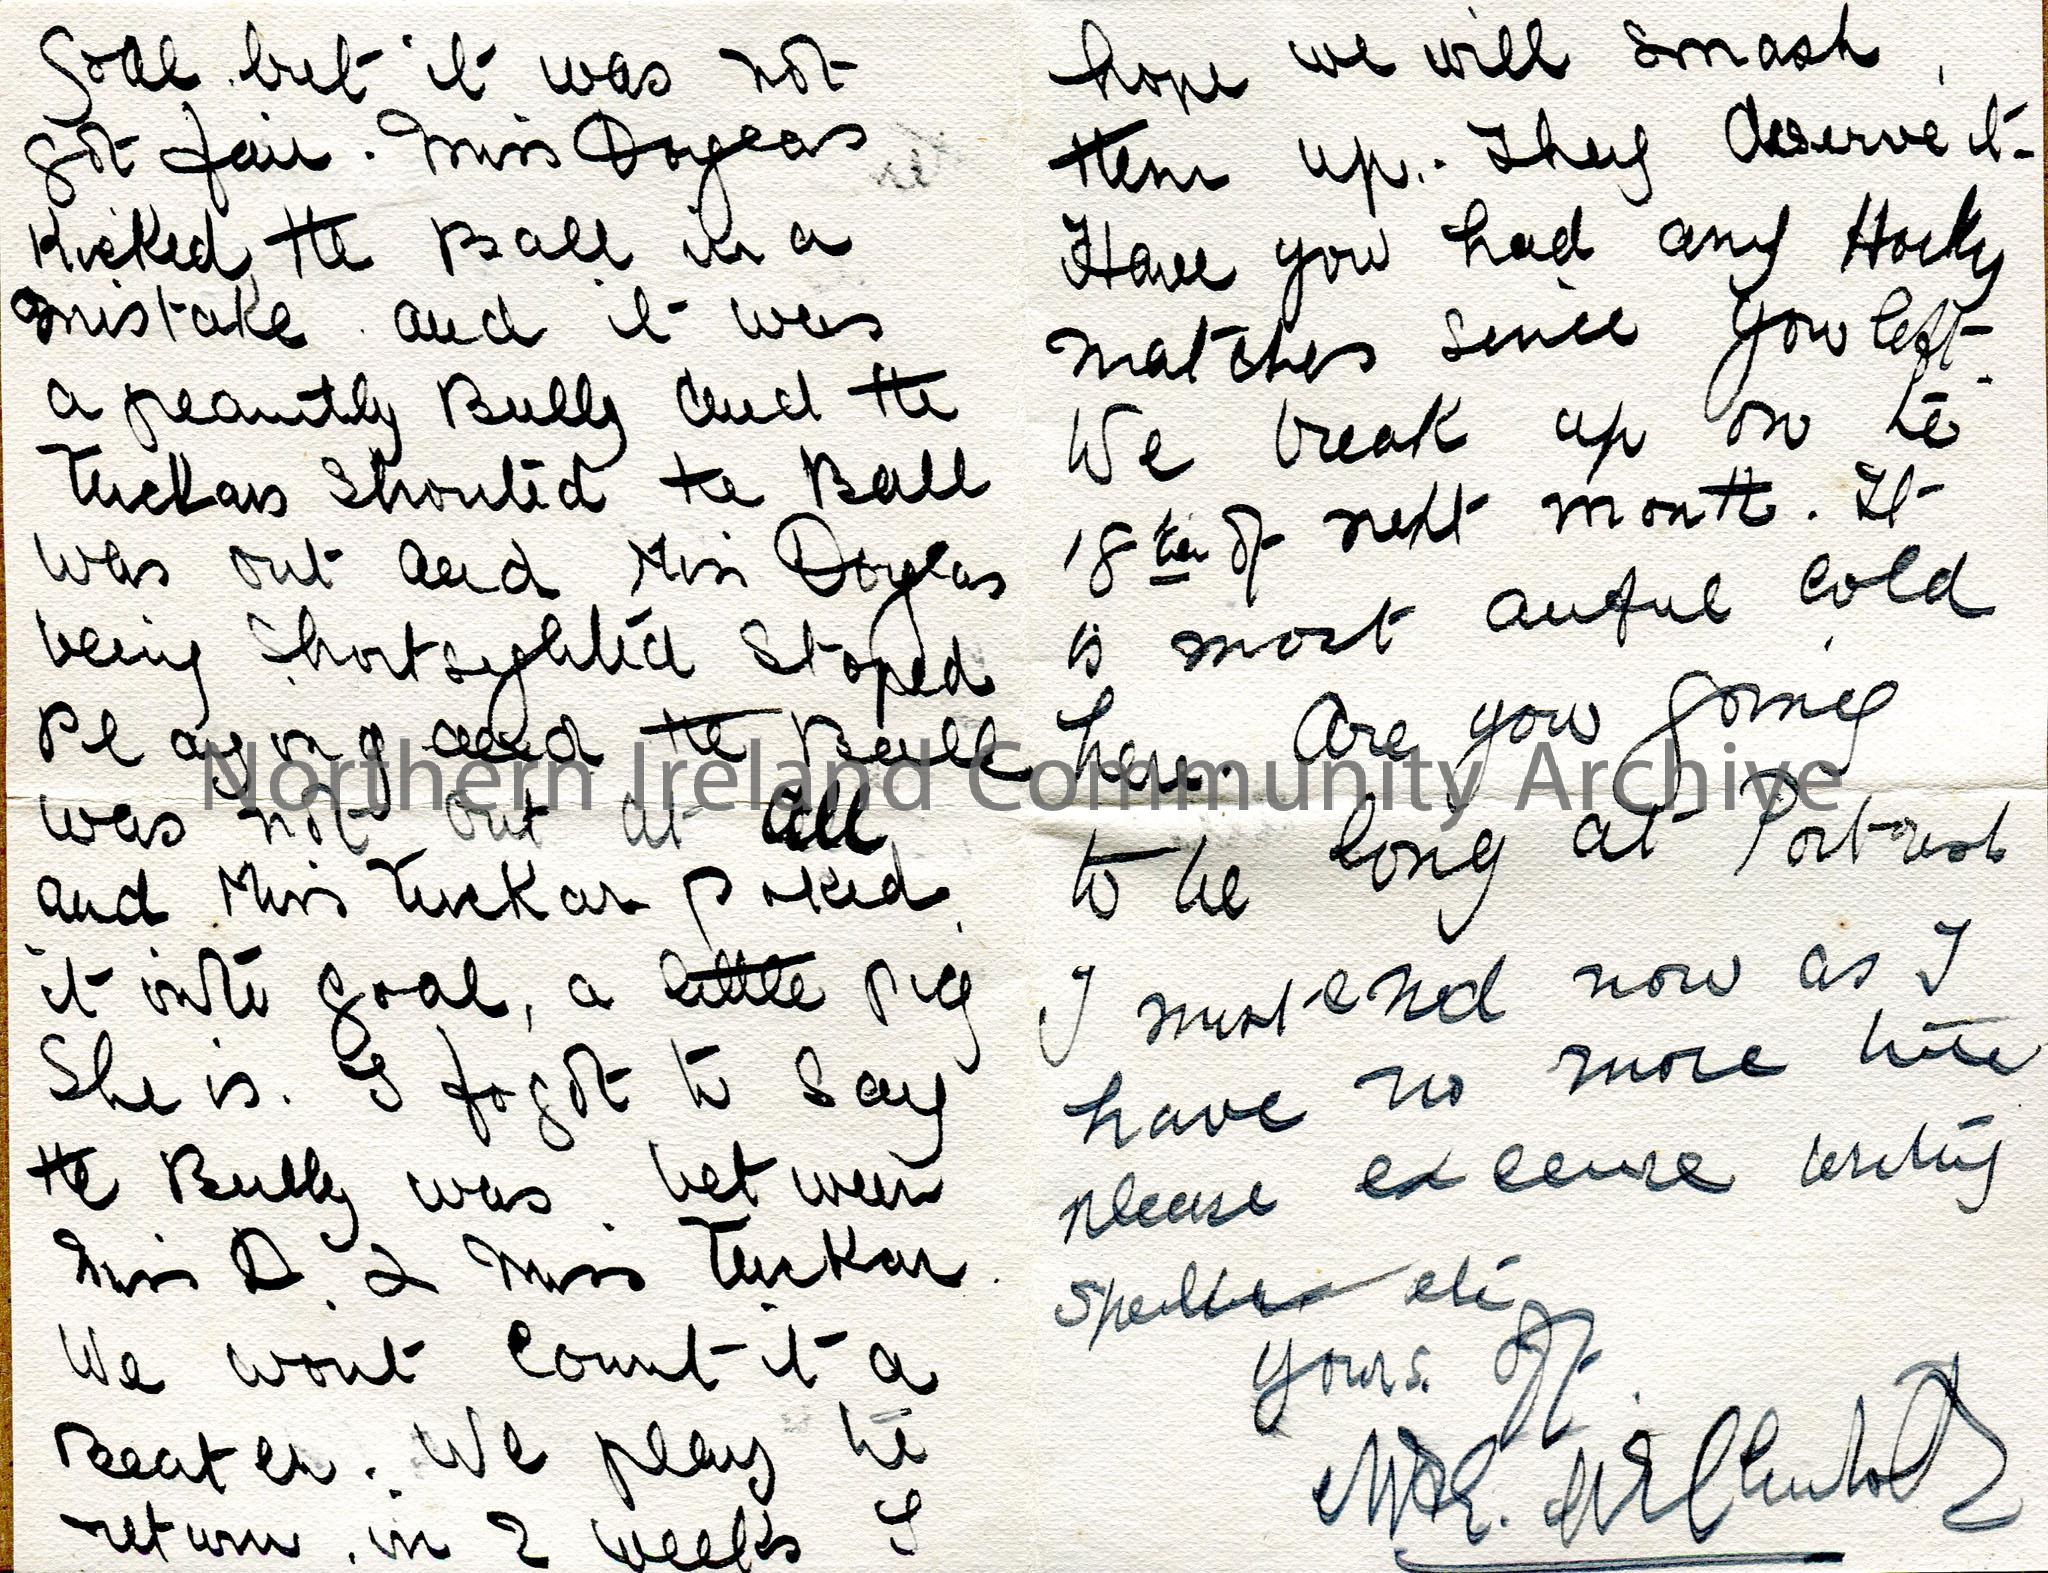 goal but it was not
got fair. Miss Dogeas
Kicked the Ball in a
mistake and it was
a peantly Bully and the
Tuckars Shouted the Ball
was out and Miss Dogeas
being Shortsighted Stoped
Playing and the Ball
was not out at all
and Miss Tuckar poked
it into goal, a little pig
She is. I fogot to Say
the Bully was between
Miss D. & Miss Tuckar.
We wont Count it a
Beaten. We play the
return in 2 weeks I
hope we will smash
them up. They deserve it
Have you had any Hocky
matches since you left.
We break up on the
18th of next month. It
is most awful cold
here. Are you going
to be long at Portrush
I must end now as I
have no more time
please excuse writing
Spelling etc
yours.
Northern Ireland Community Archive